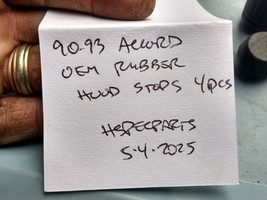 90-93 ACCORD
OEM RUBBER
HOOD STOPS 4pcs
HSPECPARTS
5-4-2025